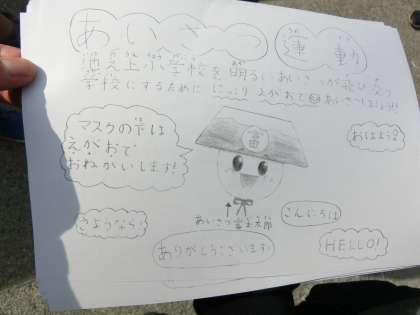 あいさつ運動
上小学校を明るいあいさつが飛び交う
学校にするために にっこり えがおで あいさつしましょう!!
マスクの下は
えがおで
おねがいします!
富
おはよう
あいさつ富士太郎
さようなら
こんにちは
ありがとうございます!
HELLO!